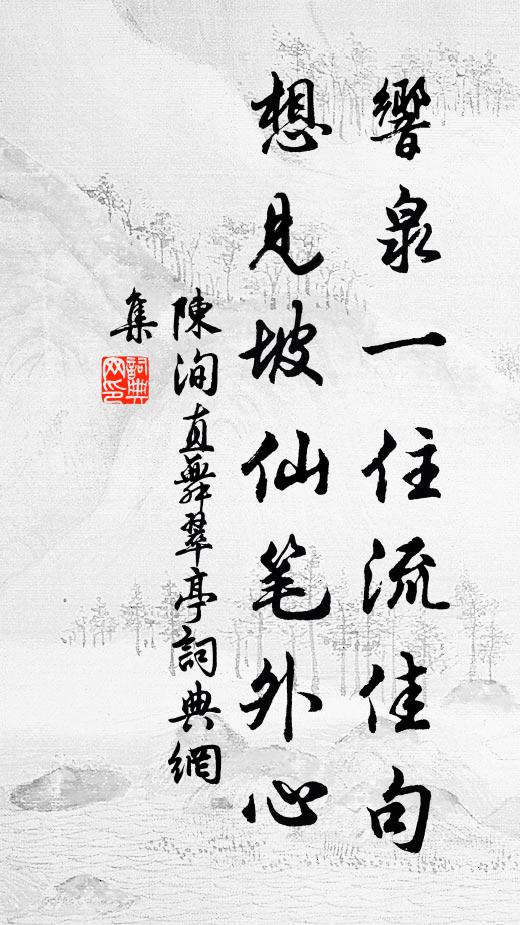 響泉一住流佳句
想見坡仙笔外心
陳洵直舞翠亭詞典網
集
詞典
网印